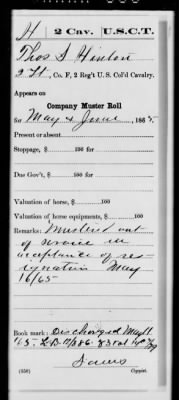 H 2 Cav. U.S.C.T.
Thos S Hinton
2 Lt, Co. F, 2 Reg't U. S. Col'd Cavalry.
Appears on
Company Muster Roll
for May & June, 1865
Present or absent
Stoppage, $ 100 for
Due Gov't, $ 100 for
Valuation of horse, $ 100
Valuation of horse equipments, $ 100
Remarks: Mustered out
of service in
acceptance of res-
ignation May
16/65
Book mark: Discharged May
'65
(358) Copyist.